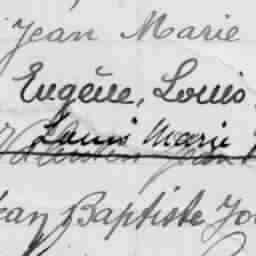 Jean Marie
Eugène, Louis
Louis Marie
ean Baptiste Jo